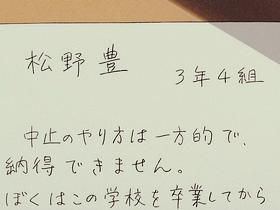 松野 豊
3年4組
中止のやり方は一方的で、
納得できません。
ぼくはこの学校を卒業してから